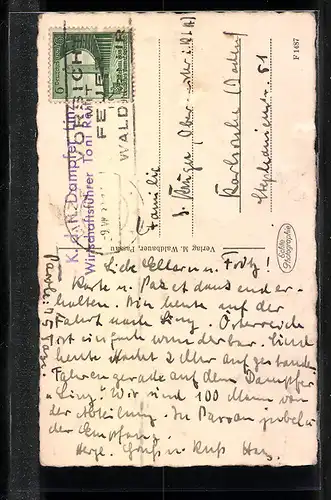 VORSICHT
FEUER
WALD
K. d. F. Dampfer Linz
Wirtschaftsführer Toni
F 1687
Familie
Karlsruhe (Baden)
Stephanienstr. 51
Verlag M. Waldbauer, Passau
Echte Photographie
Lieb Eltern u. Fritz!
Karte u. Paket dankend er-
halten. Bin heute auf der
Fahrt nach Linz. Österreich
ist einfach wunderbar. Sind
heute Nacht 2 Uhr aufgestanden
Fahren gerade auf dem Dampfer
„Linz". Wir sind 100 Mann von
der Abteilung. In Passau
der Empfang.
Herzl. Gruß u. Kuß